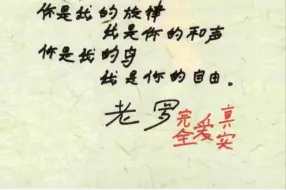 你是我的旋律
我是你的和声
你是我的鸟
我是你的自由。
老罗
完全爱真实